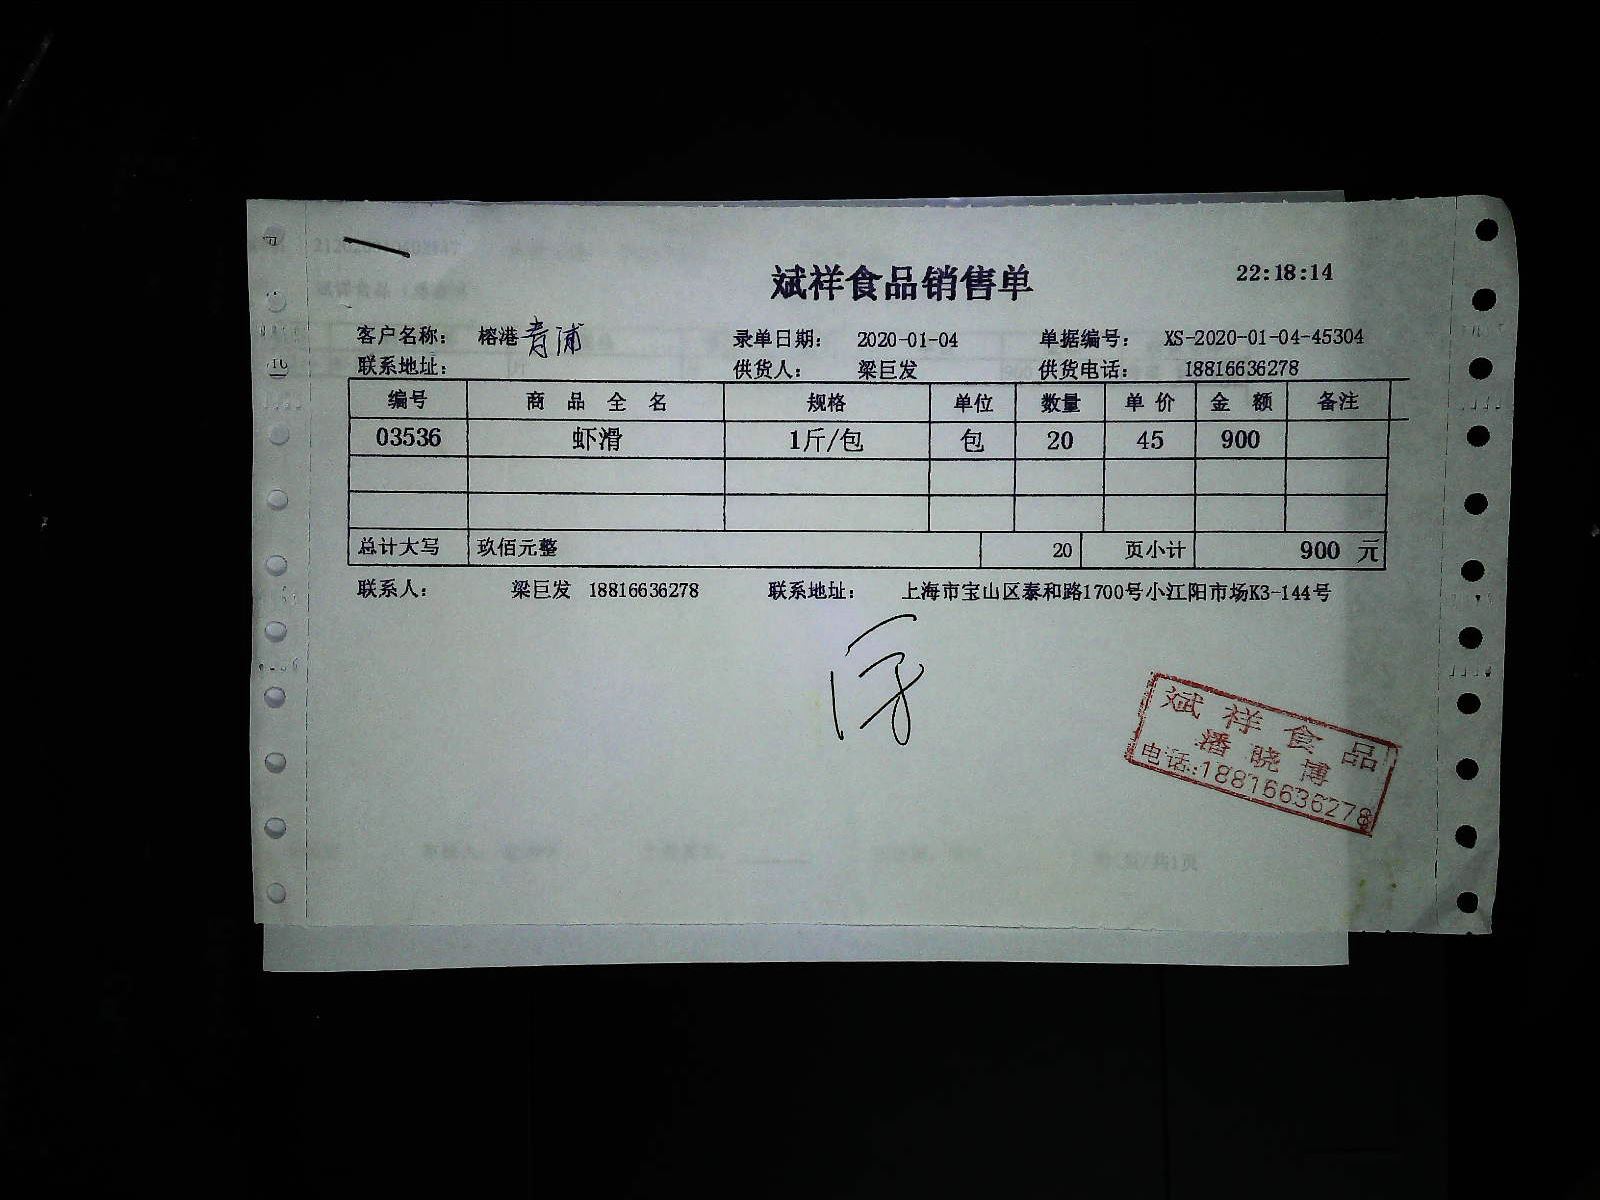 斌祥食品销售单 22:18:14
客户名称： 榕港青浦 录单日期： 2020-01-04 单据编号： XS-2020-01-04-45304
联系地址： 供货人： 梁巨发 供货电话： 18816636278
编号 商品全名 规格 单位 数量 单价 金额 备注
03536 虾滑 1斤/包 包 20 45 900
总计大写 玖佰元整 20 页小计 900 元
联系人： 梁巨发 18816636278 联系地址： 上海市宝山区泰和路1700号小江阳市场K3-144号
斌祥食品
潘晓博
电话:18816636278